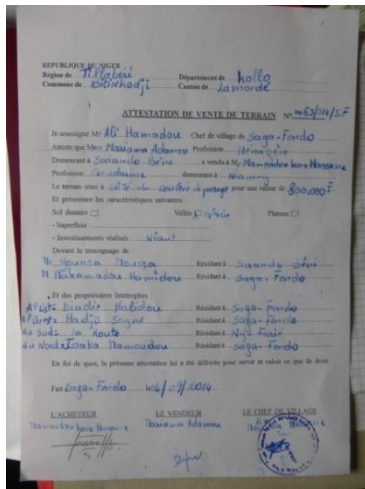 REPUBLIQUE DU NIGER
Région de Tillabéri Département de Kollo
Commune de Bitinkodji Canton de Lamordé
ATTESTATION DE VENTE DE TERRAIN N° 63/014/S.F
Je soussigné Mr Ali Hamadou Chef de village de Saga-Fondo
Atteste que Mme Mariama Adamou Profession Ménagère
Demeurant à Béné a vendu à Mr Mamoudou Hassane
Profession demeurant à Niamey
Le terrain situé à côté du couloir de passage pour une valeur de 800.000F
Et présentant les caractéristiques suivantes :
Sol dunaire Vallée Plateau
- Superficie :
- Investissements réalisés : Néant
Devant le témoignage de
Mr Younsa Mouza Résidant à
M Mahamadou Hamidou Résidant à Saga-Fondo
Et des propriétaires limitrophes
A l'Est Habidou Résidant à Saga-Fondo
Hadjo Résidant à Saga-Fondo
Au Sud la Route Résidant à
Au Nord Isaka Mamoudou Résidant à Saga-Fondo
En foi de quoi, la présente attestation lui a été délivrée pour servir et valoir ce que de droit.
Fait Saga-Fondo 2014
L'ACHETEUR LE VENDEUR LE CHEF DE VILLAGE
Mamoudou Mariama Adamou